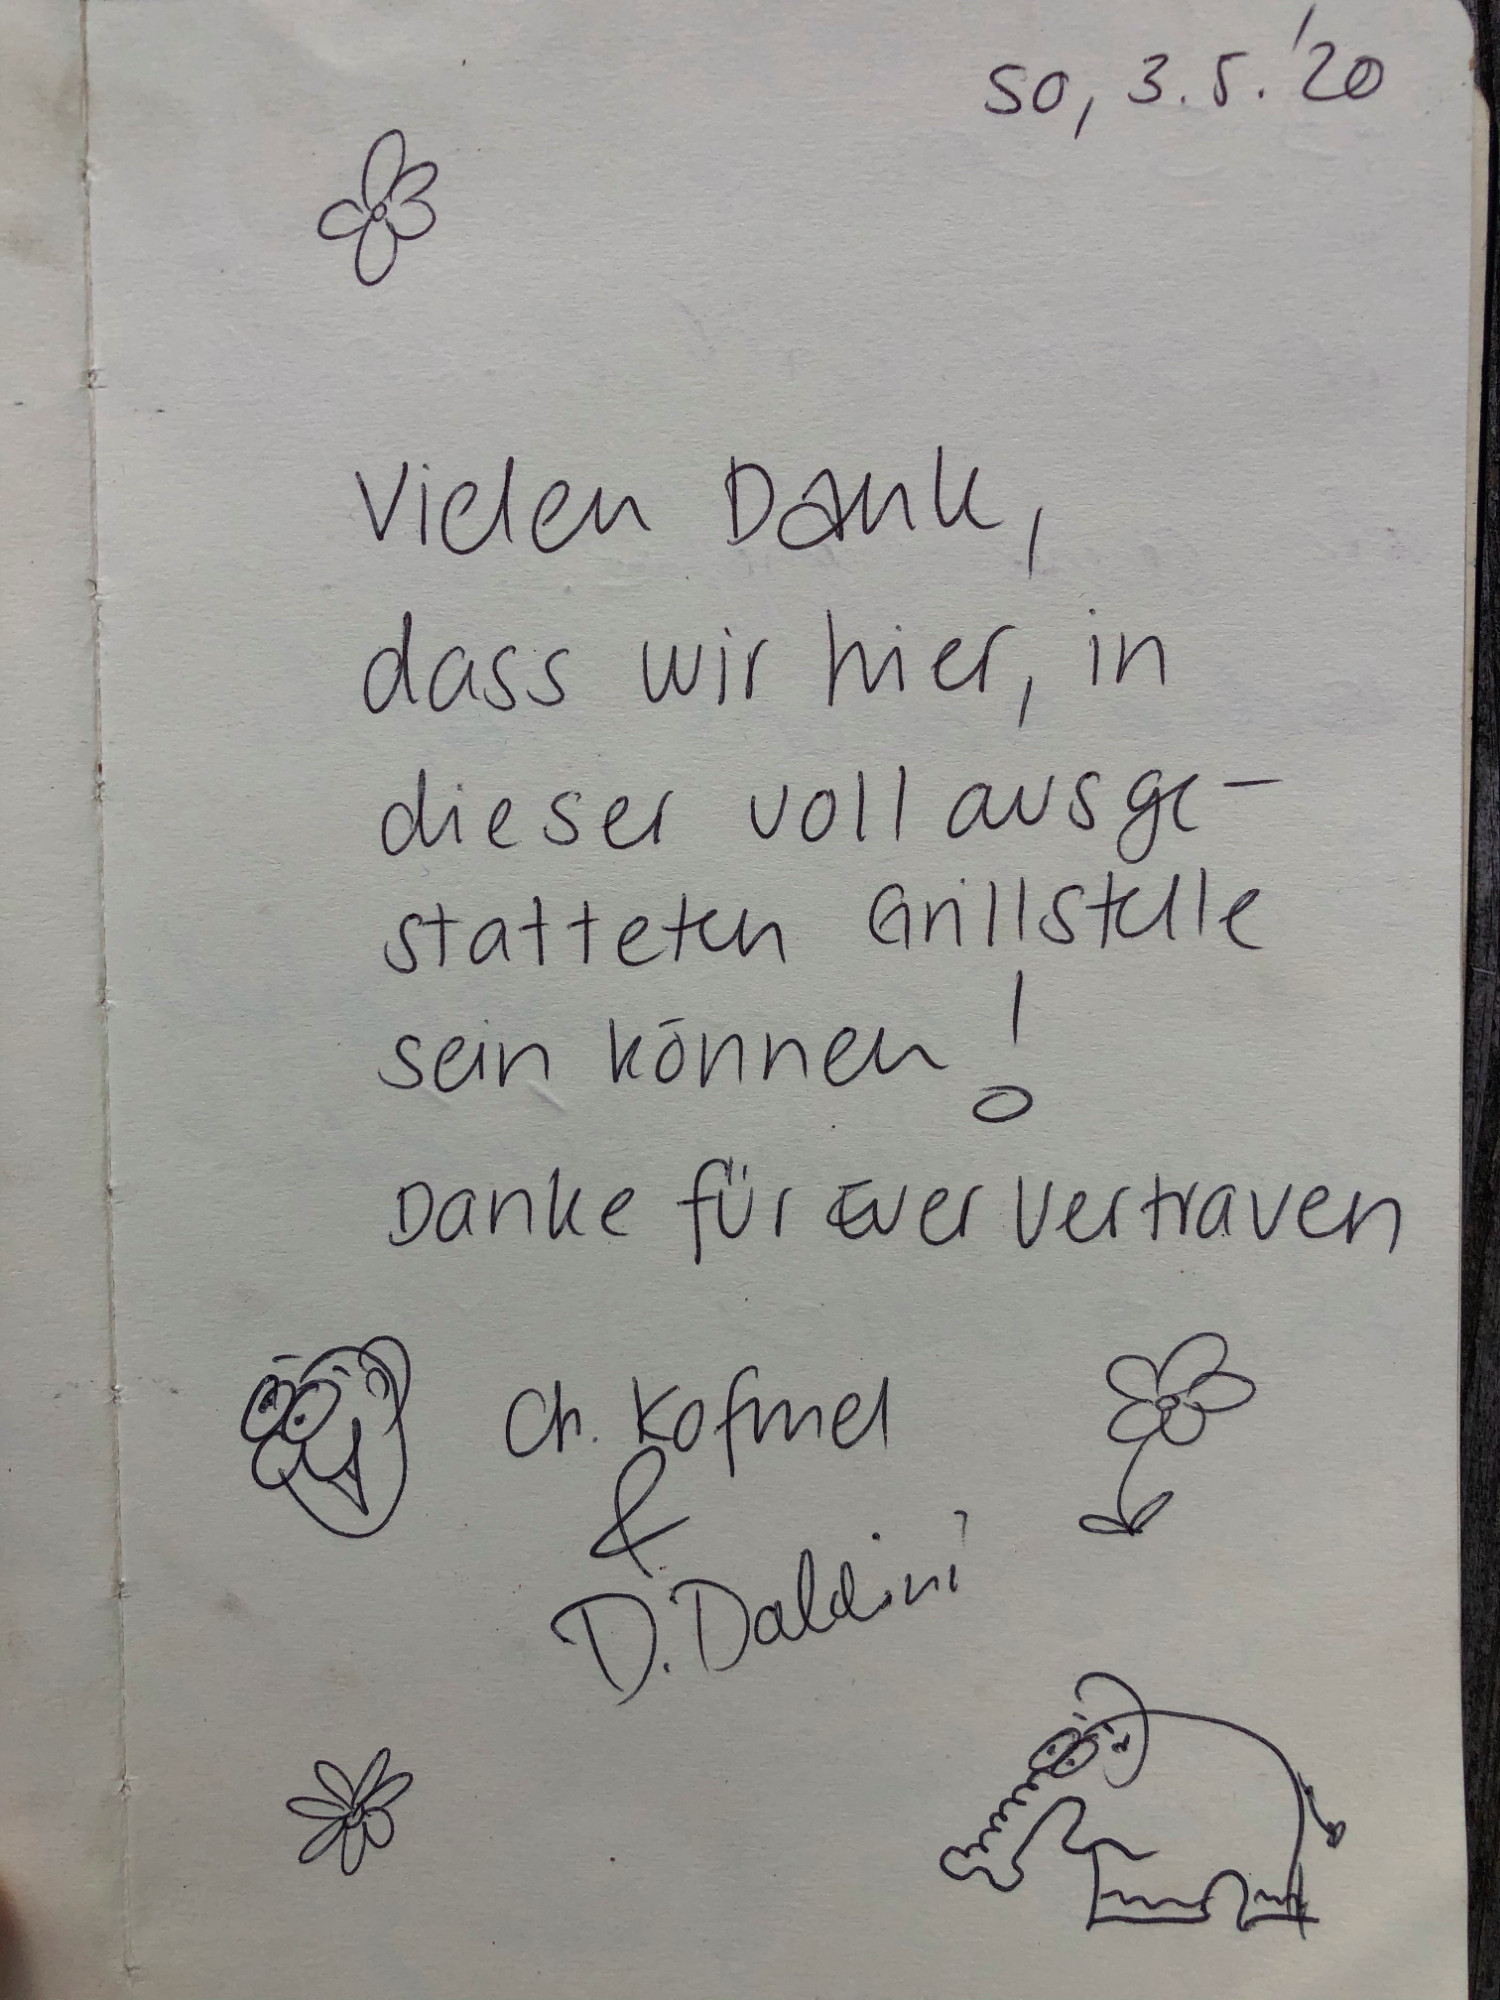 So, 3.5.'20
Vielen Dank,
dass wir hier, in
dieser voll ausge-
statteten Grillstelle
sein können!
Danke für Euer Vertrauen
Ch. Kofmel
&
D. Daldini